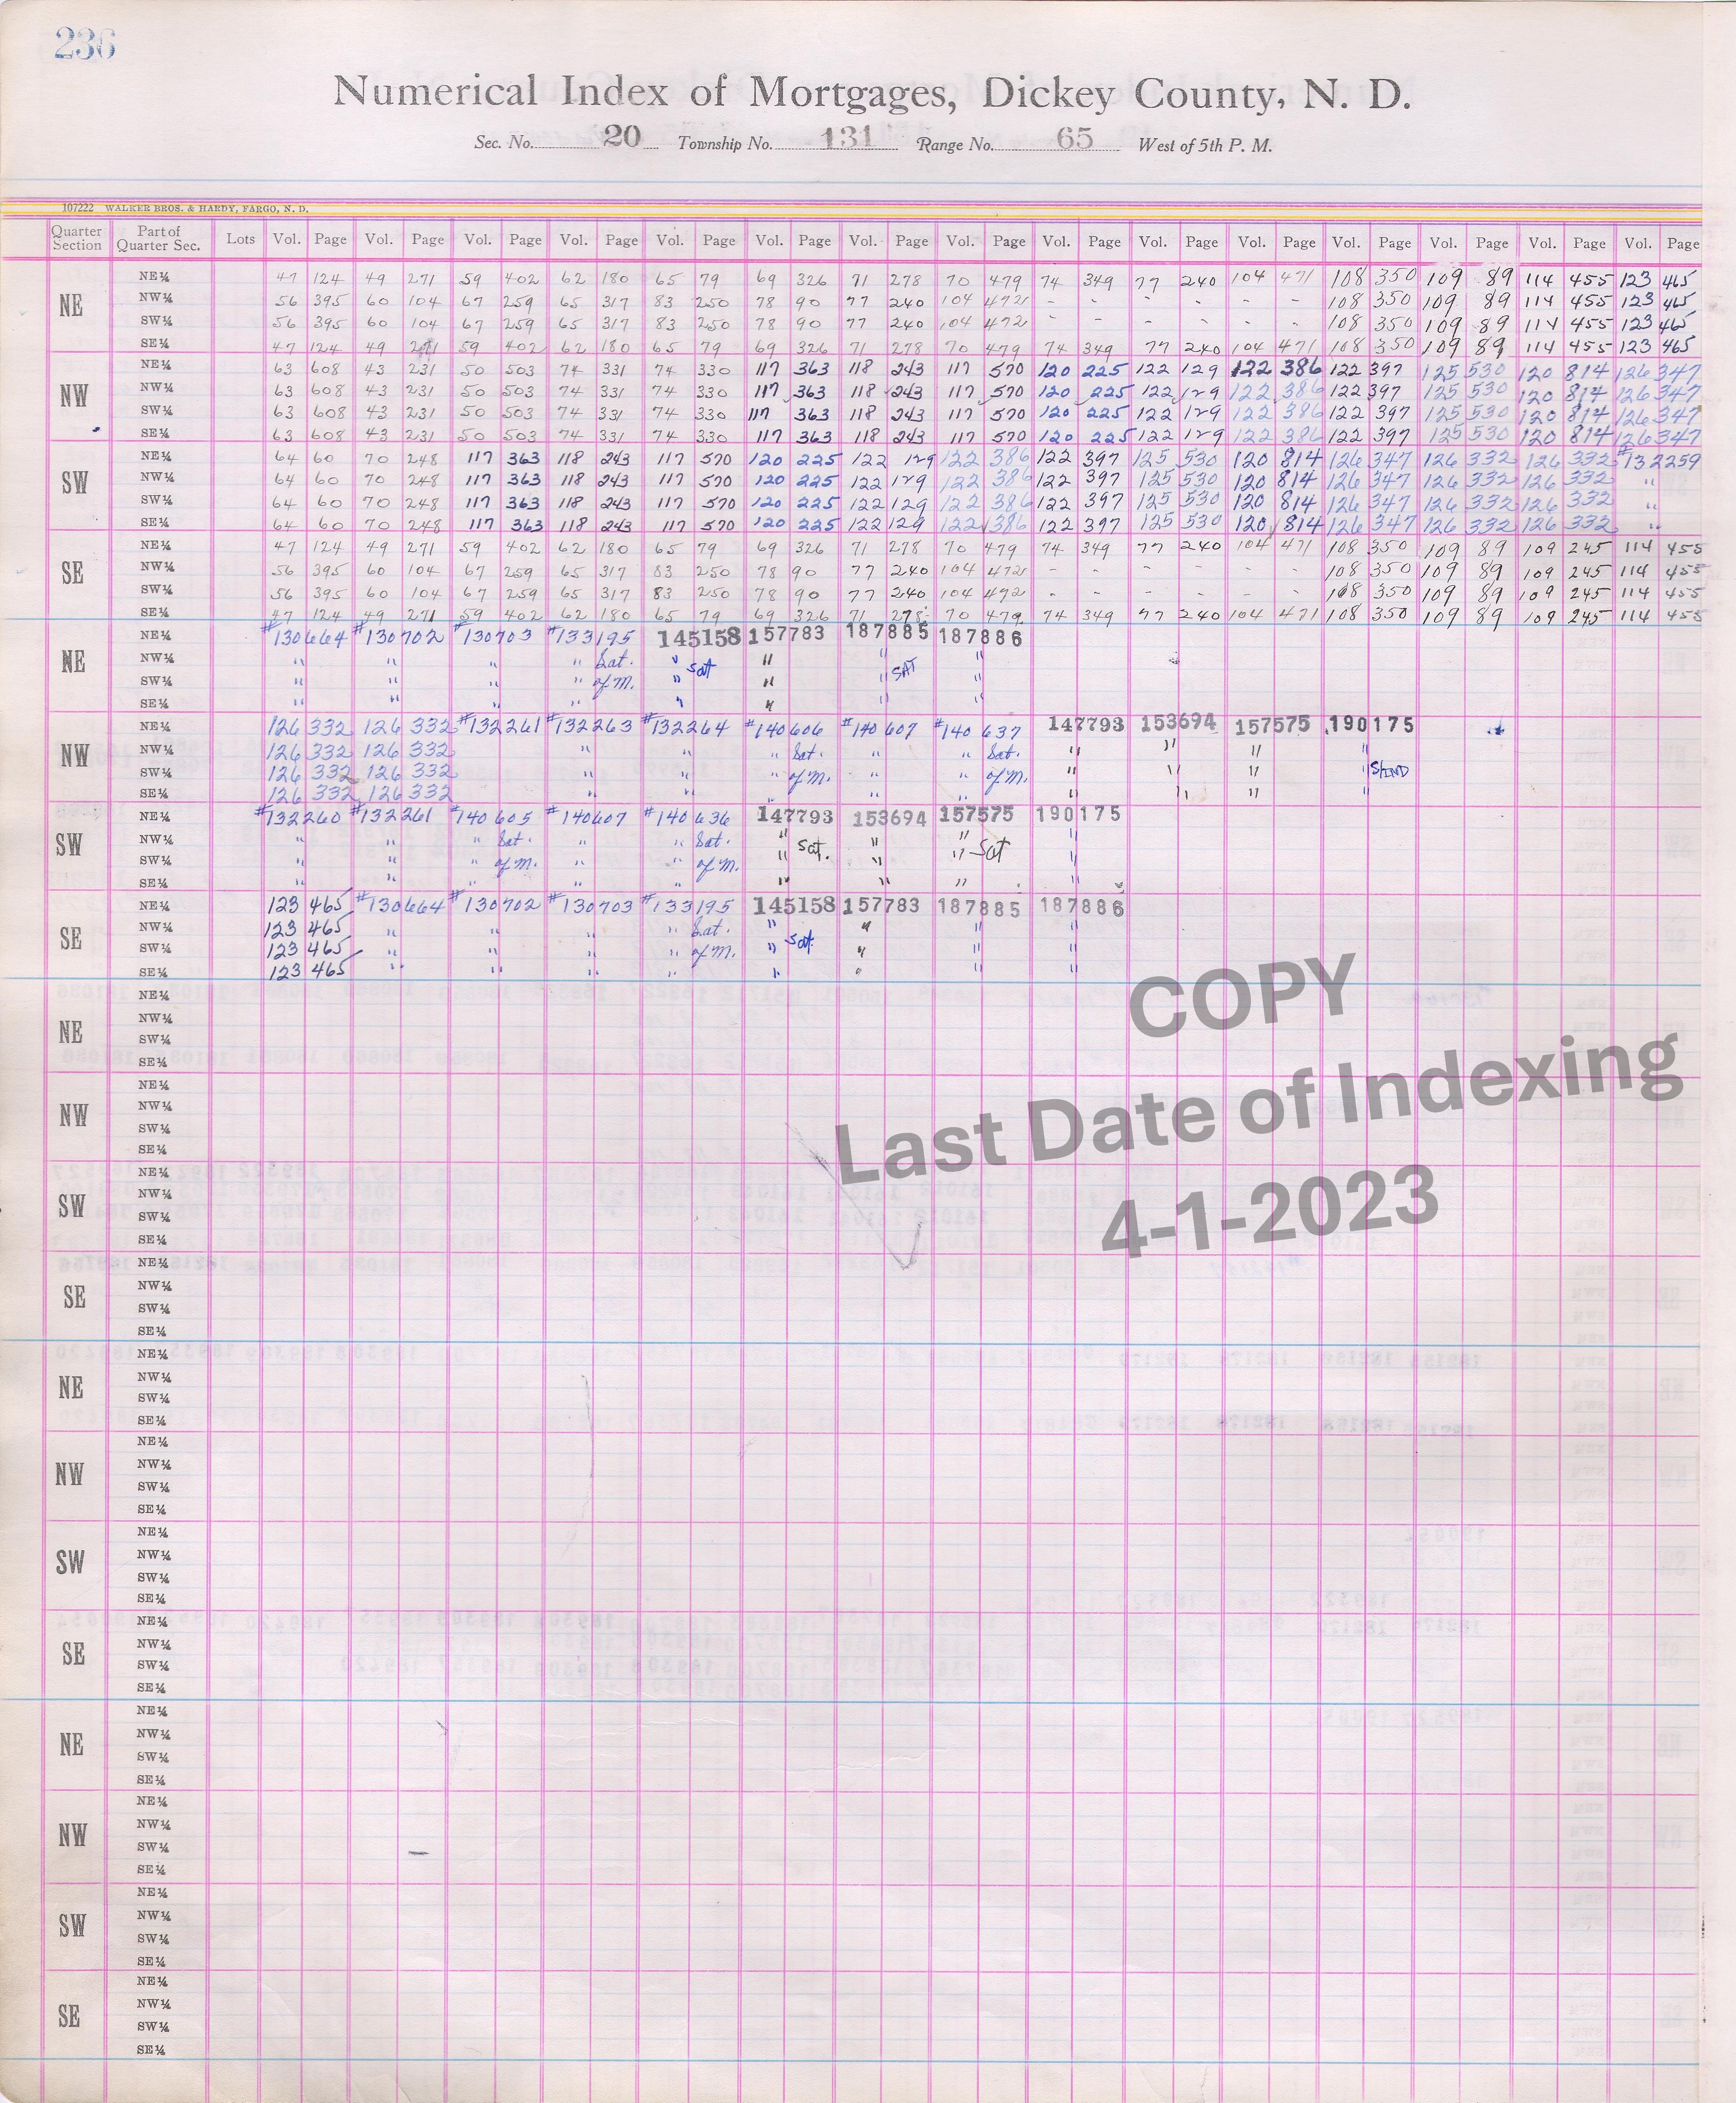 236
Numerical Index of Mortgages, Dickey County, N. D.
Sec. No. 20 Township No. 131 Range No. 65 West of 5th P. M.
107222 WALKER BROS. & HARDY, FARGO, N. D.
Quarter Section Part of Quarter Sec. Lots Vol. Page Vol. Page Vol. Page Vol. Page Vol. Page Vol. Page Vol. Page Vol. Page Vol. Page Vol. Page Vol. Page Vol. Page Vol. Page Vol. Page Vol. Page
NE
NE¼ 47 124 49 271 59 402 62 180 65 79 69 326 71 278 70 479 74 349 77 240 104 471 108 350 109 89 114 455 123 465
NW¼ 56 395 60 104 67 259 65 317 83 250 78 90 77 240 104 472 - - - - - - 108 350 109 89 114 455 123 465
SW¼ 56 395 60 104 67 259 65 317 83 250 78 90 77 240 104 472 - - - - - - 108 350 109 89 114 455 123 465
SE¼ 47 124 49 271 59 402 62 180 65 79 69 326 71 278 70 479 74 349 77 240 104 471 108 350 109 89 114 455 123 465
NW
NE¼ 63 608 43 231 50 503 74 331 74 330 117 363 118 243 117 570 120 225 122 129 122 386 122 397 125 530 120 814 126 347
NW¼ 63 608 43 231 50 503 74 331 74 330 117 363 118 243 117 570 120 225 122 129 122 386 122 397 125 530 120 814 126 347
SW¼ 63 608 43 231 50 503 74 331 74 330 117 363 118 243 117 570 120 225 122 129 122 386 122 397 125 530 120 814 126 347
SE¼ 63 608 43 231 50 503 74 331 74 330 117 363 118 243 117 570 120 225 122 129 122 386 122 397 125 530 120 814 126 347
SW
NE¼ 64 60 70 248 117 363 118 243 117 570 120 225 122 129 122 386 122 397 125 530 120 814 126 347 126 332 126 332 #132259
NW¼ 64 60 70 248 117 363 118 243 117 570 120 225 122 129 122 386 122 397 125 530 120 814 126 347 126 332 126 332 "
SW¼ 64 60 70 248 117 363 118 243 117 570 120 225 122 129 122 386 122 397 125 530 120 814 126 347 126 332 126 332 "
SE¼ 64 60 70 248 117 363 118 243 117 570 120 225 122 129 122 386 122 397 125 530 120 814 126 347 126 332 126 332 "
SE
NE¼ 47 124 49 271 59 402 62 180 65 79 69 326 71 278 70 479 74 349 77 240 104 471 108 350 109 89 109 245 114 455
NW¼ 56 395 60 104 67 259 65 317 83 250 78 90 77 240 104 472 - - - - - - 108 350 109 89 109 245 114 455
SW¼ 56 395 60 104 67 259 65 317 83 250 78 90 77 240 104 472 - - - - - - 108 350 109 89 109 245 114 455
SE¼ 47 124 49 271 59 402 62 180 65 79 69 326 71 278 70 479 74 349 77 240 104 471 108 350 109 89 109 245 114 455
NE
NE¼ #130664 #130702 #130703 #133195 145158 157783 187885 187886
NW¼ " " " " Sat. " Sat " " SAT "
SW¼ " " " " of M. " " " "
SE¼ " " " " " " "
NW
NE¼ 126 332 126 332 #132261 #132263 #132264 #140606 #140607 #140637 147793 153694 157575 190175
NW¼ 126 332 126 332 " " " Sat. " " Sat. " " " "
SW¼ 126 332 126 332 " " " of M. " " of M. " " " " S/IND
SE¼ 126 332 126 332 " " " " " " " " "
SW
NE¼ #132260 #132261 #140605 #140607 #140636 147793 153694 157575 190175
NW¼ " " " Sat. " " Sat. " Sat. " " Sat "
SW¼ " " " of M. " " of M. " " " "
SE¼ " " " " " " " " "
SE
NE¼ 123 465 #130664 #130702 #130703 #133195 145158 157783 187885 187886
NW¼ 123 465 " " " " Sat. " Sat. " " "
SW¼ 123 465 " " " " of M. " " " "
SE¼ 123 465 " " " " " " " "
NE
NE¼
NW¼
SW¼
SE¼
NW
NE¼
NW¼
SW¼
SE¼
SW
NE¼
NW¼
SW¼
SE¼
SE
NE¼
NW¼
SW¼
SE¼
NE
NE¼
NW¼
SW¼
SE¼
NW
NE¼
NW¼
SW¼
SE¼
SW
NE¼
NW¼
SW¼
SE¼
SE
NE¼
NW¼
SW¼
SE¼
NE
NE¼
NW¼
SW¼
SE¼
NW
NE¼
NW¼
SW¼
SE¼
SW
NE¼
NW¼
SW¼
SE¼
SE
NE¼
NW¼
SW¼
SE¼
COPY
Last Date of Indexing
4-1-2023